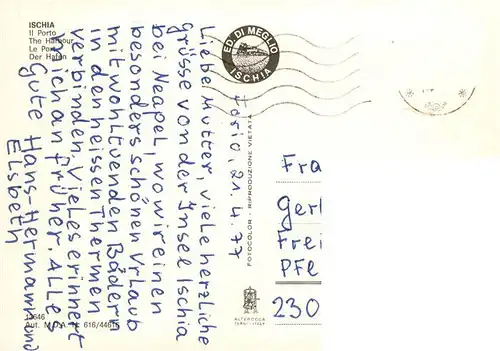 ISCHIA
Il Porto
The Harbour
Le Port
Der Hafen
ED. DI MEGLIO
ISCHIA
Forio, 21.4.77
Liebe Mutter, viele herzliche
grüsse von der Insel Ischia
bei Neapel, wo wir einen
besonders schönen Urlaub
mit wohltuenden Bädern
in den heissen Thermen
verbinden. Vieles erinnert
mich an früher. Alles
Gute Hans-Hermann und
Elsbeth
FOTOCOLOR - RIPRODUZIONE VIETATA
Fra
Gerl
Frei
Pfle
230
ALTEROCCA
TERNI - ITALY
Aut. M.D.A. N. 616/44615